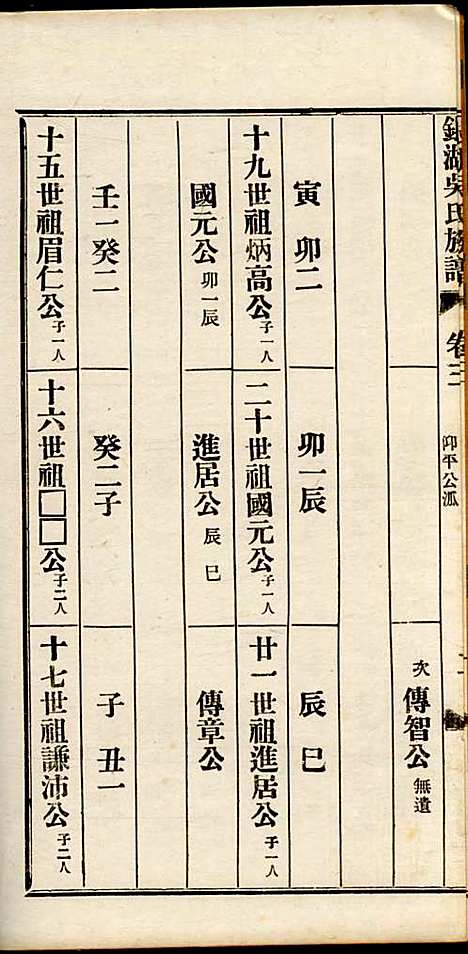 湖吳氏族譜
卷三
卬平公泒
次 傳智公 無遺
寅卯二
卯一辰
辰巳
十九世祖炳高公 子一人
二十世祖國元公 子一人
廿一世祖進居公 子一人
國元公 卯一辰
進居公 辰巳
傳章公
壬一癸二
癸二子
子丑一
十五世祖眉仁公 子一人
十六世祖□□公 子二人
十七世祖謙沛公 子二人